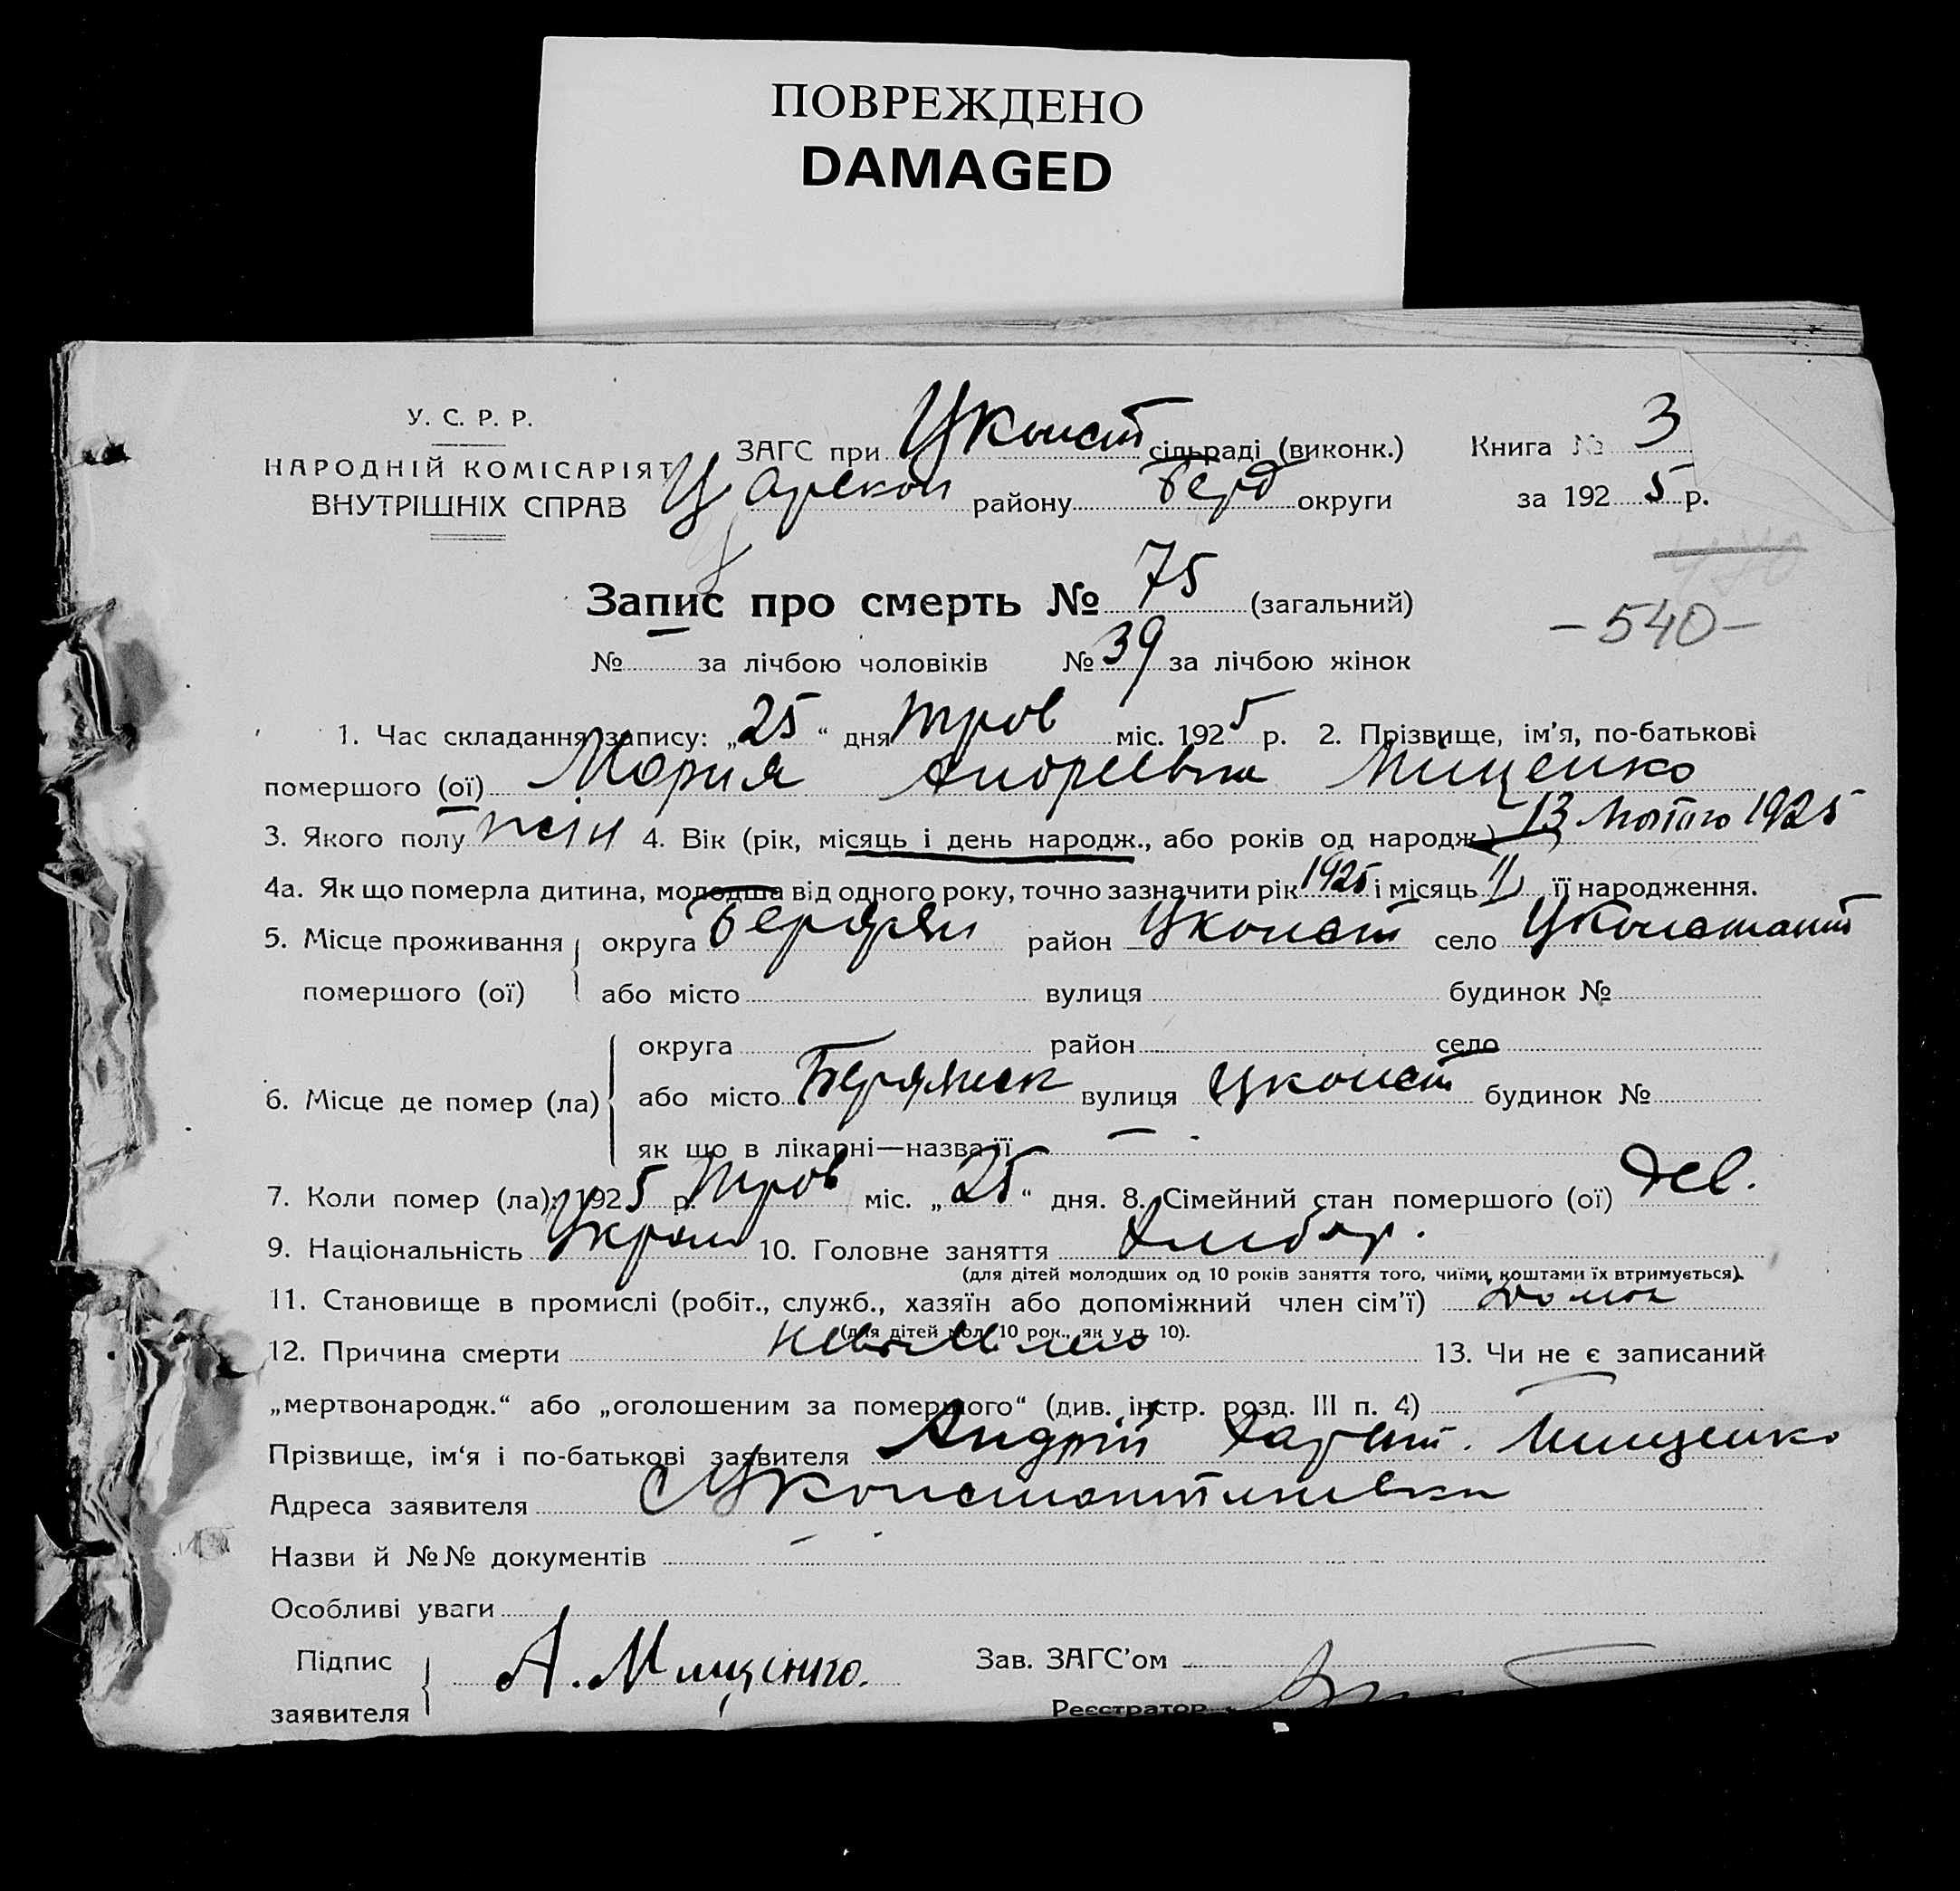 ПОВРЕЖДЕНО
DAMAGED
У. С. Р. Р.
НАРОДНІЙ КОМІСАРІЯТ
ВНУТРІШНІХ СПРАВ
ЗАГС при Цконст сільраді (виконк.)
Царекон району Берд округи
Книга № 3
за 1925 р.
Запис про смерть № 75 (загальний)
- 540 -
№ — за лічбою чоловіків № 39 за лічбою жінок
1. Час складання запису: „25“ дня трав міс. 1925 р. 2. Прізвище, ім’я, по-батькові
помершого (ої) Мария Андреевна Мищенко
3. Якого полу жін 4. Вік (рік, місяць і день народж., або років од народж.) 13 лютого 1925
4а. Як що померла дитина, молодша від одного року, точно зазначити рік 1925 і місяць II її народження.
5. Місце проживання помершого (ої) округа Бердян район Цконст село Цконстант
або місто вулиця будинок №
6. Місце де помер (ла) округа район село
або місто Бердянск вулиця Цконст будинок №
як що в лікарні—назва її —
7. Коли помер (ла): 1925 р. трав міс. „25“ дня. 8. Сімейний стан помершого (ої) дев.
9. Національність Украин 10. Головне заняття Хлібор.
(для дітей молодших од 10 років заняття того, чиїми коштами їх втримується).
11. Становище в промислі (робіт., служб., хазяїн або допоміжний член сім’ї)
(для дітей мол. 10 рок., як у п. 10).
12. Причина смерти 13. Чи не є записаний
„мертвонародж.“ або „оголошеним за помершого“ (див. інстр. розд. III п. 4) —
Прізвище, ім‘я і по-батькові заявителя Андрій Мищенко
Адреса заявителя с Цконстантиновка
Назви й №№ документів —
Особливі уваги
Підпис
заявителя А. Мищенко.
Зав. ЗАГС’ом
Реєстратор